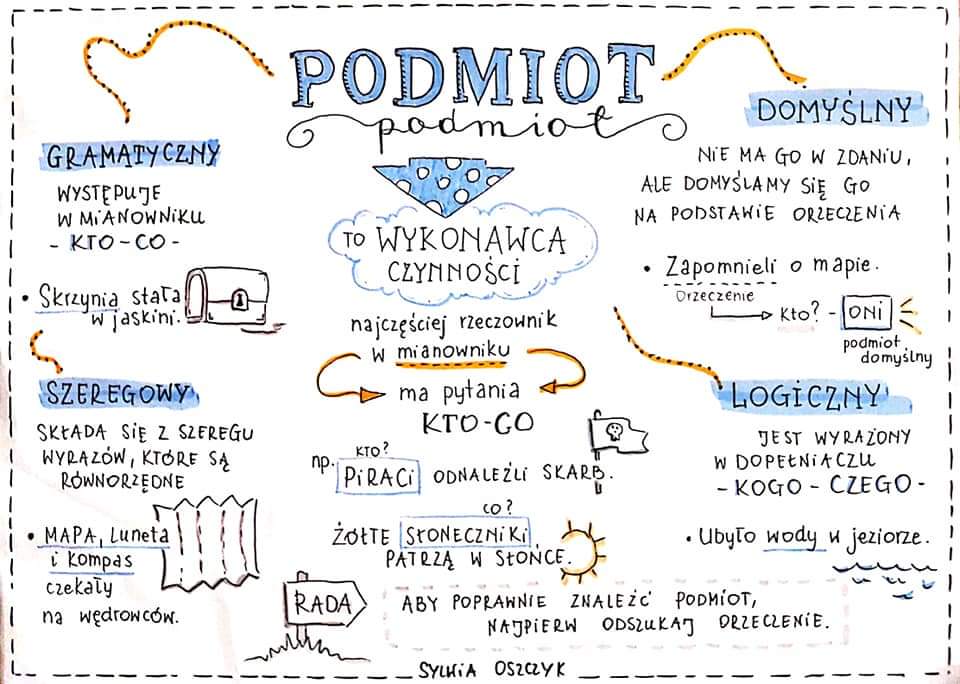 PODMIOT
podmiot
GRAMATYCZNY
WYSTĘPUJE
W MIANOWNIKU
- KTO - CO -
• Skrzynia stała
w jaskini.
SZEREGOWY
SKŁADA SIĘ Z SZEREGU
WYRAZÓW, KTÓRE SĄ
RÓWNORZĘDNE
• MAPA, Luneta
i kompas
czekały
na wędrowców.
TO WYKONAWCA
CZYNNOŚCI
najczęściej rzeczownik
w mianowniku
ma pytania
KTO-CO
KTO?
np. PIRACI ODNALEŹLI SKARB.
CO?
ŻÓŁTE SŁONECZNIKI
PATRZĄ W SŁOŃCE.
DOMYŚLNY
NIE MA GO W ZDANIU,
ALE DOMYŚLAMY SIĘ GO
NA PODSTAWIE ORZECZENIA
• Zapomnieli o mapie.
Orzeczenie
Kto? - ONI
podmiot
domyślny
LOGICZNY
JEST WYRAŻONY
W DOPEŁNIACZU
- KOGO - CZEGO -
• Ubyło wody w jeziorze.
RADA
ABY POPRAWNIE ZNALEŹĆ PODMIOT,
NAJPIERW ODSZUKAJ ORZECZENIE.
SYLWIA OSZCZYK